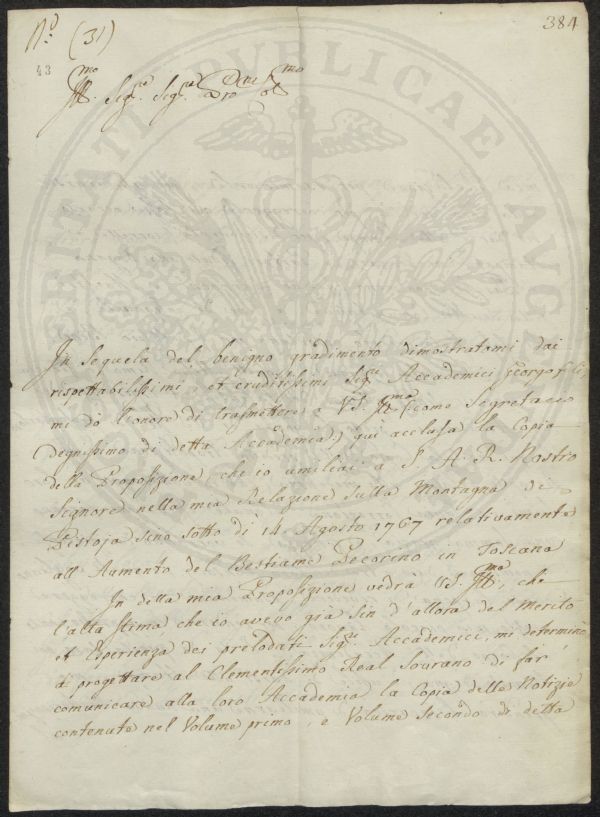 N.o (31)
384
43
Ill.mo Sig.re Sig.re Pro.ne Col.mo
In sequela del benigno gradimento dimostratomi dai
rispettabilissimi, et eruditissimi Sig.ri Accademici Georgofili
mi dò l'onore di trasmettere a VS. Ill.ma (come Segretario
Degnissimo di detta Accademia) qui acclusa la Copia
della Proposizione, che io umiliai a S. A. R. Nostro
Signore nella mia Relazione sulla Montagna di
Pistoja sino sotto dì 14 Agosto 1767 relativamente
all'Aumento del Bestiame Pecorino in Toscana
In della mia Proposizione vedrà VS. Ill.ma, che
l'alta stima che io avevo già sin d'allora del merito
et Esperienza dei prelodati Sig.ri Accademici, mi determinò
a progettare al Clementissimo Real Sovrano di far
comunicare alla loro Accademia la Copia delle Notizie
contenute nel Volume primo, e Volume Secondo di detta
PUBLICAE AUGE